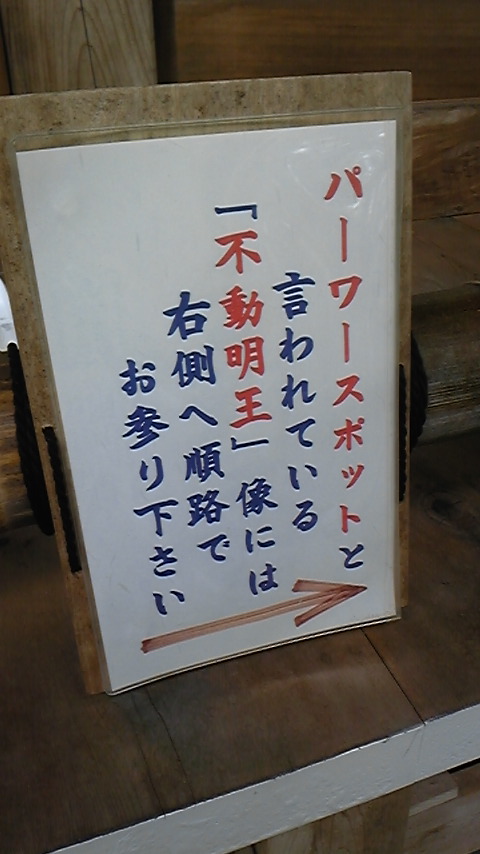 パーワースポットと
言われている
「不動明王」像には
右側へ順路で
お参り下さい